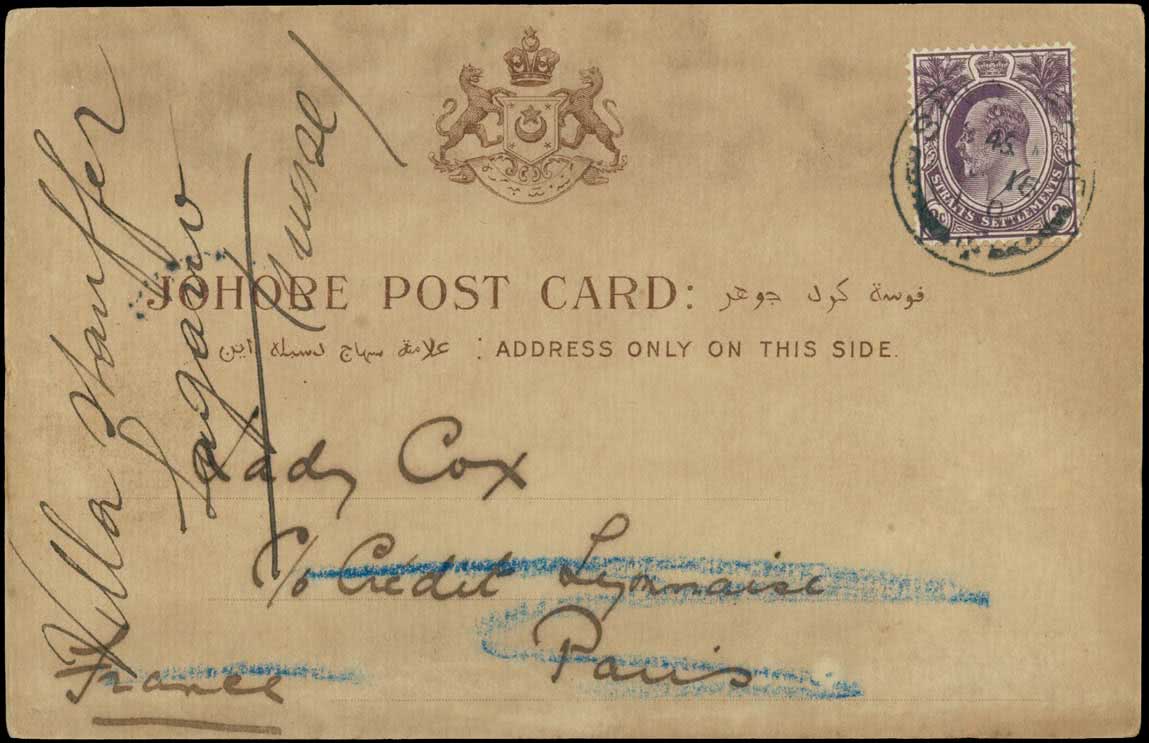 JOHORE POST CARD: فوسة كرد جوهر
علامة سهاج دسبله اين : ADDRESS ONLY ON THIS SIDE.
Lady Cox
c/o Crédit Lyonnaise
Paris
France
Villa Stauffer
Lugano
Suisse
STRAITS SETTLEMENTS
3